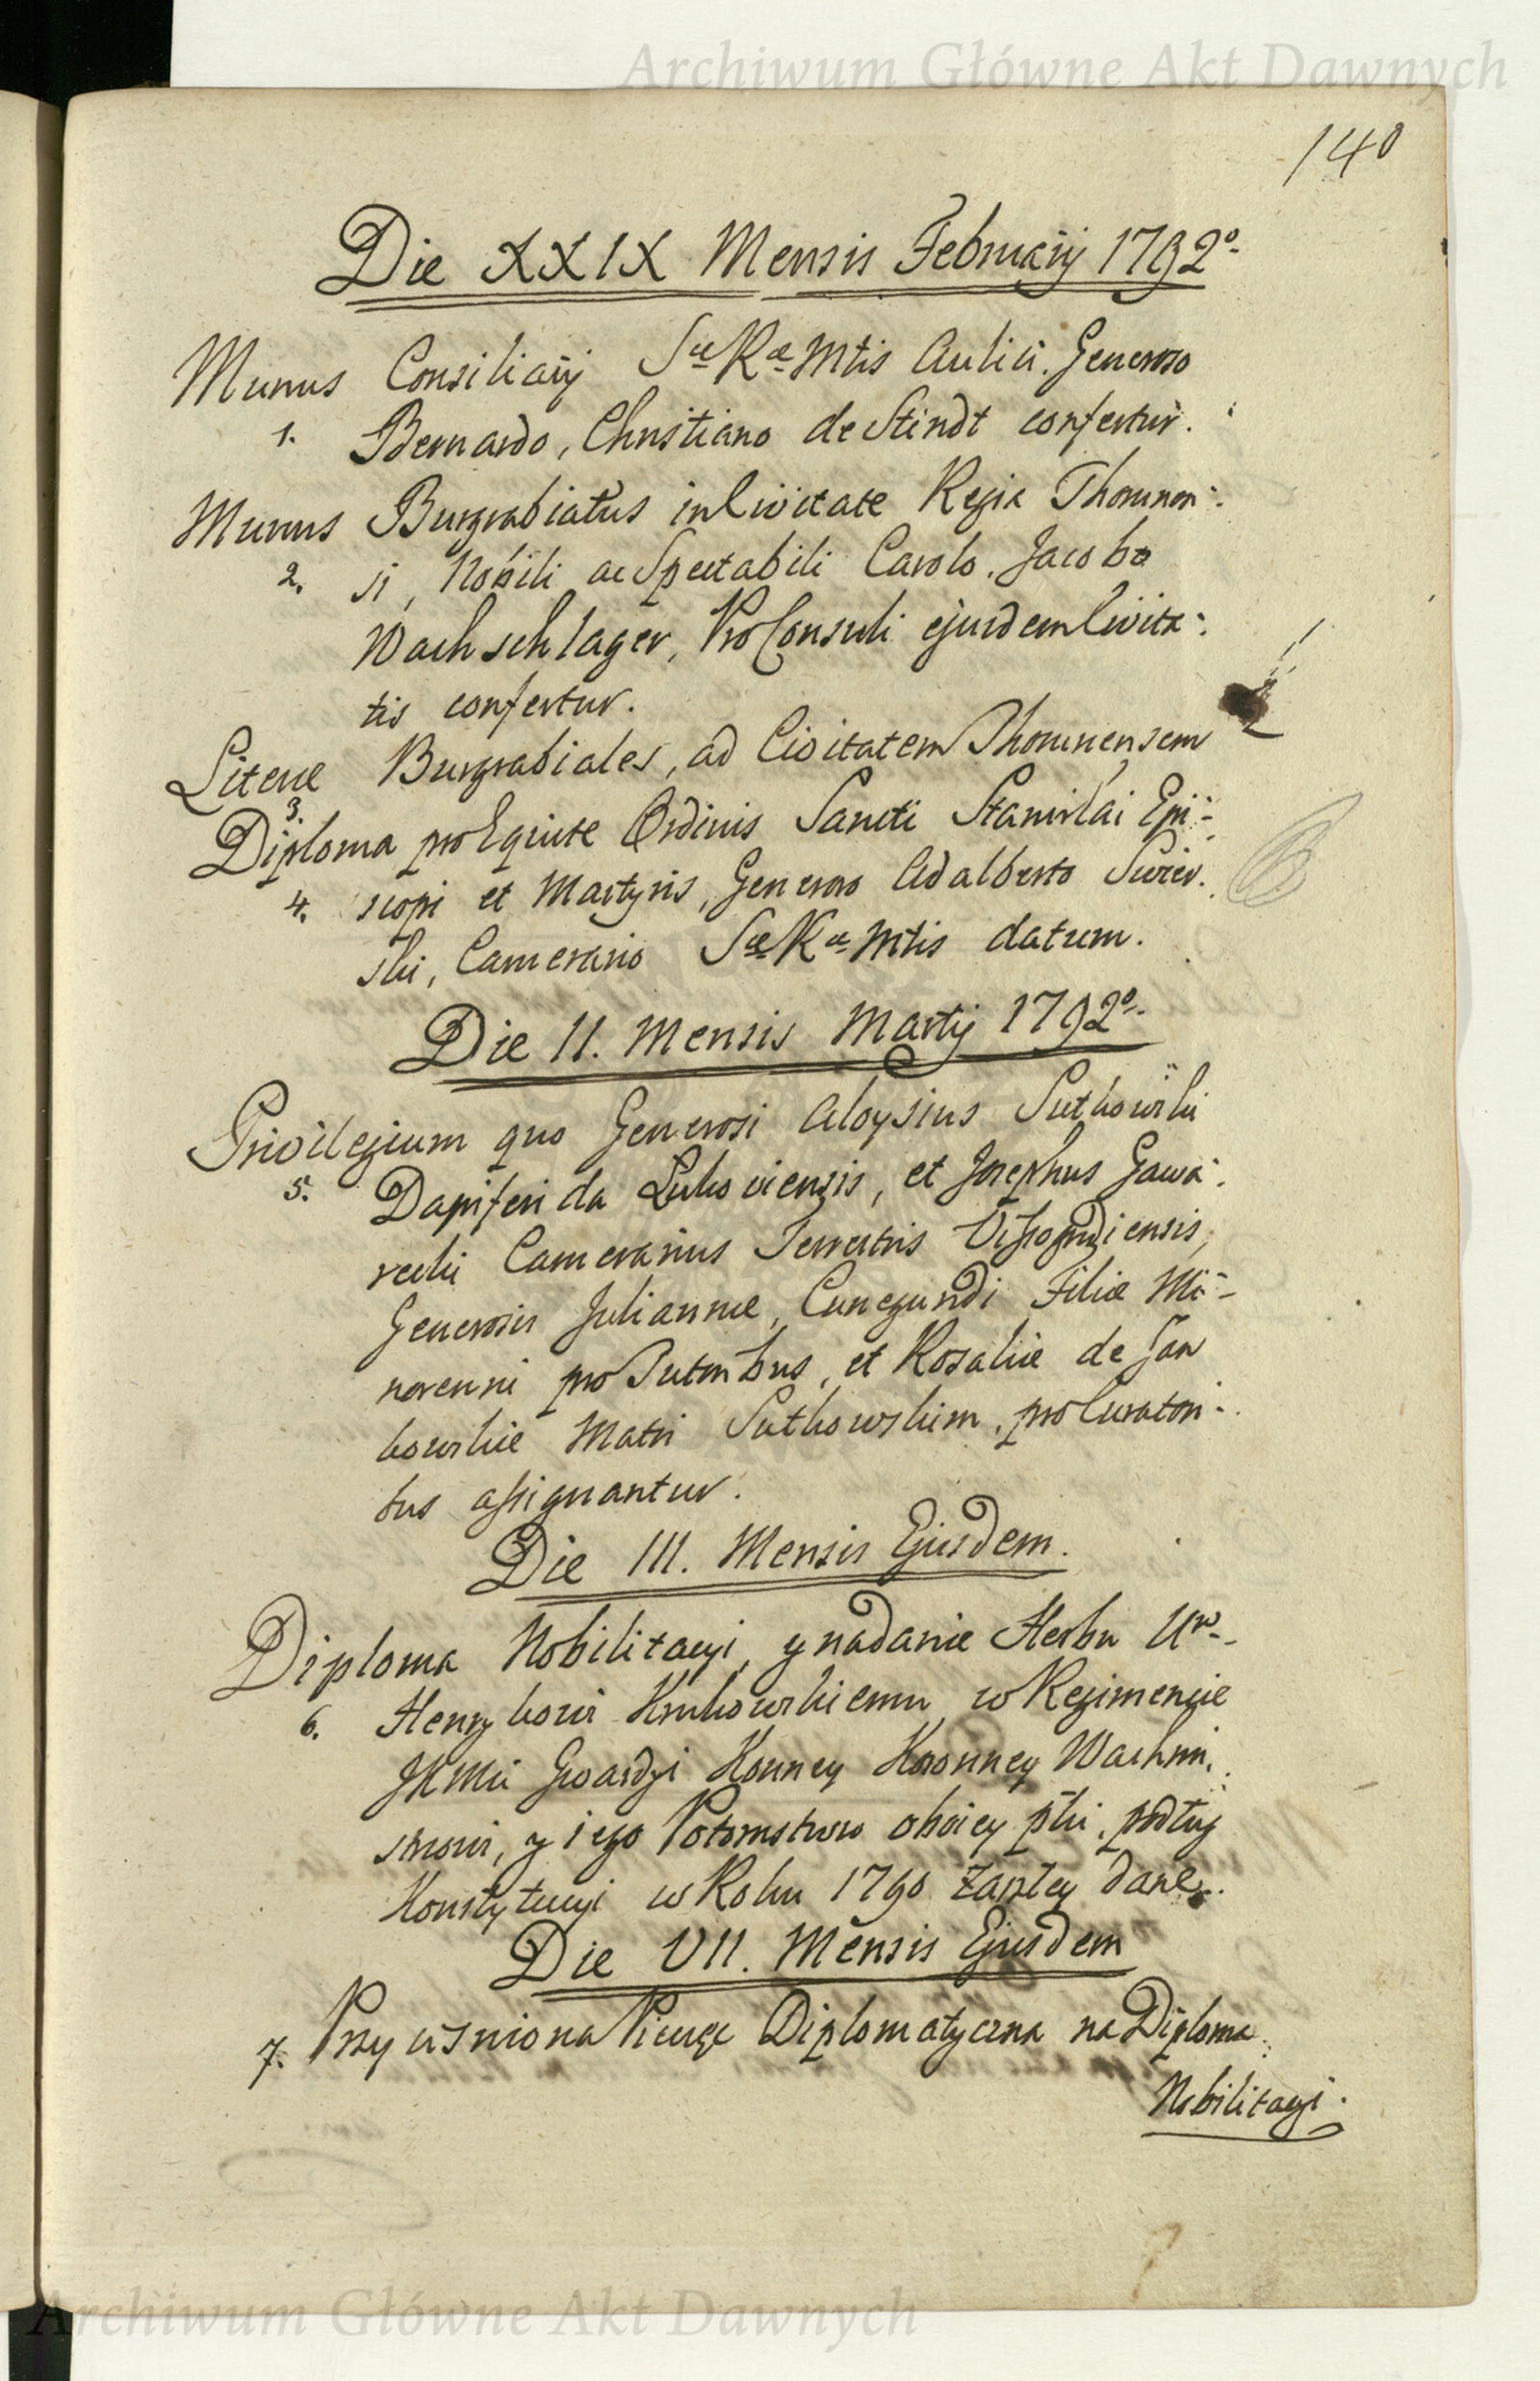 Archiwum Główne Akt Dawnych
140
Die XXIX Mensis Februarij 1792º
Munus Consiliarij Sæ Ræ Mtis Aulici Generoso
1. Bernardo, Christiano de Stindt confertur.
Munus Burgrabiatus in Civitate Regia Thorunen-
2. si, Nobili ac Spectabili Carolo, Jacobo
Wachschlager, ProConsuli ejusdem Civita-
tis confertur.
Literæ Burgrabiales, ad Civitatem Thorunensem
3.
Diploma pro Equite Ordinis Sancti Stanislai Epi-
4. scopi et Martyris, Generoso Adalberto
ski, Camerario Sæ Ræ Mtis datum.
Die II. Mensis Martij 1792º
Privilegium quo Generosi Aloysius Sutkowski
5. Dapiferida Lukoviensis, et Josephus Gawa-
recki Camerarius Terrestris Vissogrodiensis,
Generosis Juliannæ, Cunegundi Filiæ Mi-
norenni pro Tutoribus, et Rosaliæ de Jan
kowskie Matri Sutkowskim, pro Curatori-
bus assignantur.
Die III. Mensis Ejusdem.
Diploma Nobilitacyi, y nadanie Herbu Urº
6. Henrykowi Krukowskiemu w Regimencie
JKMci Gwardyi Konney Koronney Wachmi,
strzowi, y iego Potomstwu oboiey płci, podług
Konstytucyi w Roku 1790 zaszłey dane.
Die VII. Mensis Ejusdem
7. Przyciśniona Pieczęc Diplomatyczna na Diploma
Nobilitacyi.
Archiwum Główne Akt Dawnych